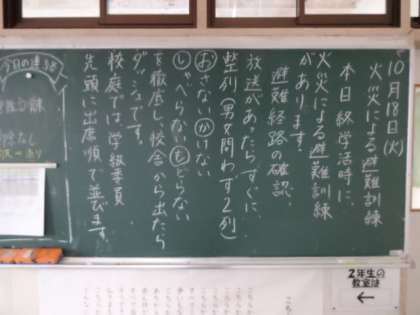 10月18日(火)
火災による避難訓練
本日終学活時に、
火災による避難訓練
があります。
避難経路の確認
放送があったらすぐに、
整列(男女問わず2列)
おさない かけない
しゃべらない もどらない
を徹底し、校舎から出たら
ダッシュです。
校庭では学級委員
先頭に出席順で並びます。
今日の連絡
2年生の
教室は
←